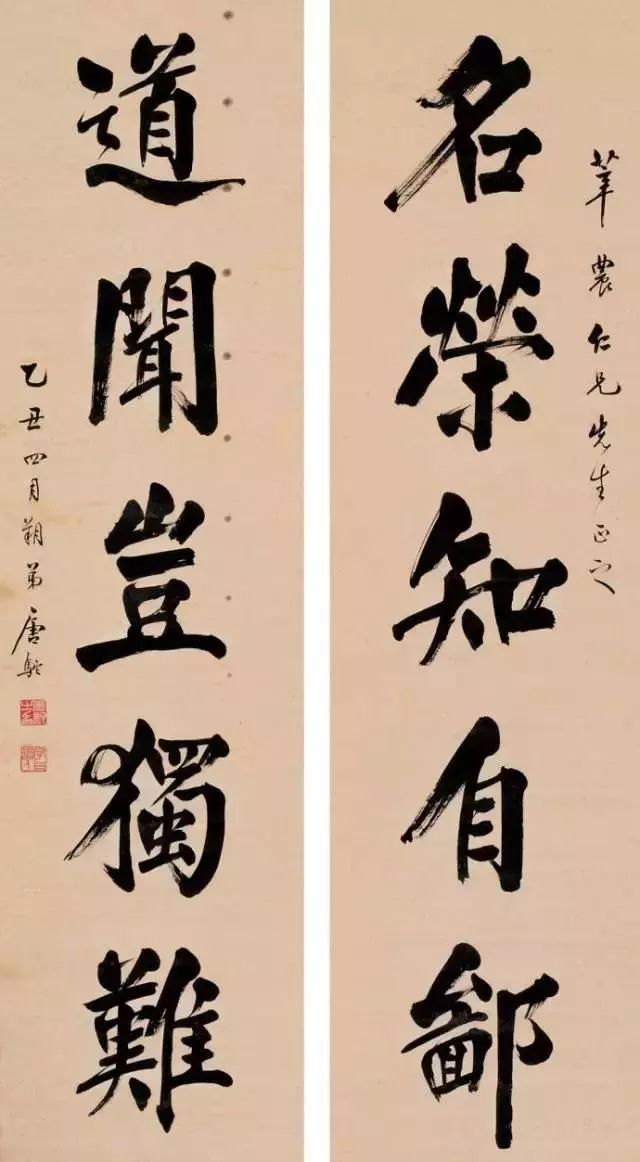 莘農仁兄先生正之
名榮知自鄙
道聞豈獨難
乙丑四月朔弟唐駝